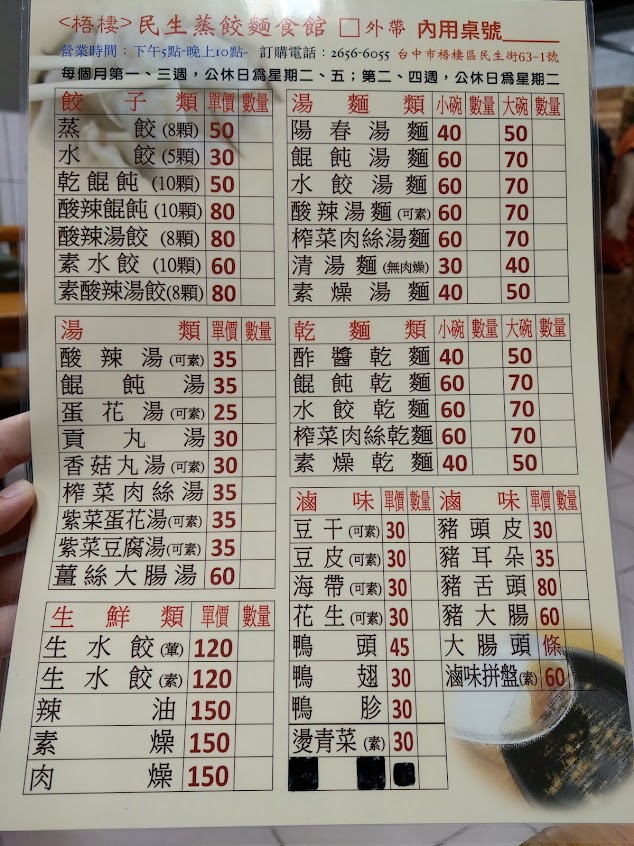 <梧棲>民生蒸餃麵食館 □外帶 內用桌號______
營業時間：下午5點-晚上10點- 訂購電話：2656-6055 台中市梧棲區民生街63-1號
每個月第一、三週，公休日為星期二、五；第二、四週，公休日為星期二
餃子類 單價 數量
蒸餃(8顆) 50
水餃(5顆) 30
乾餛飩(10顆) 50
酸辣餛飩(10顆) 80
酸辣湯餃(8顆) 80
素水餃(10顆) 60
素酸辣湯餃(8顆) 80
湯麵類 小碗 數量 大碗 數量
陽春湯麵 40 50
餛飩湯麵 60 70
水餃湯麵 60 70
酸辣湯麵(可素) 60 70
榨菜肉絲湯麵 60 70
清湯麵(無肉燥) 30 40
素燥湯麵 40 50
湯類 單價 數量
酸辣湯(可素) 35
餛飩湯 35
蛋花湯(可素) 25
貢丸湯 30
香菇丸湯(可素) 30
榨菜肉絲湯 35
紫菜蛋花湯(可素) 35
紫菜豆腐湯(可素) 35
薑絲大腸湯 60
乾麵類 小碗 數量 大碗 數量
酢醬乾麵 40 50
餛飩乾麵 60 70
水餃乾麵 60 70
榨菜肉絲乾麵 60 70
素燥乾麵 40 50
生鮮類 單價 數量
生水餃(葷) 120
生水餃(素) 120
辣油 150
素燥 150
肉燥 150
滷味 單價 數量 滷味 單價 數量
豆干(可素) 30 豬頭皮 30
豆皮(可素) 30 豬耳朵 35
海帶(可素) 30 豬舌頭 80
花生(可素) 30 豬大腸 60
鴨頭 45 大腸頭 條
鴨翅 30 滷味拼盤(素) 60
鴨胗 30
燙青菜(素) 30